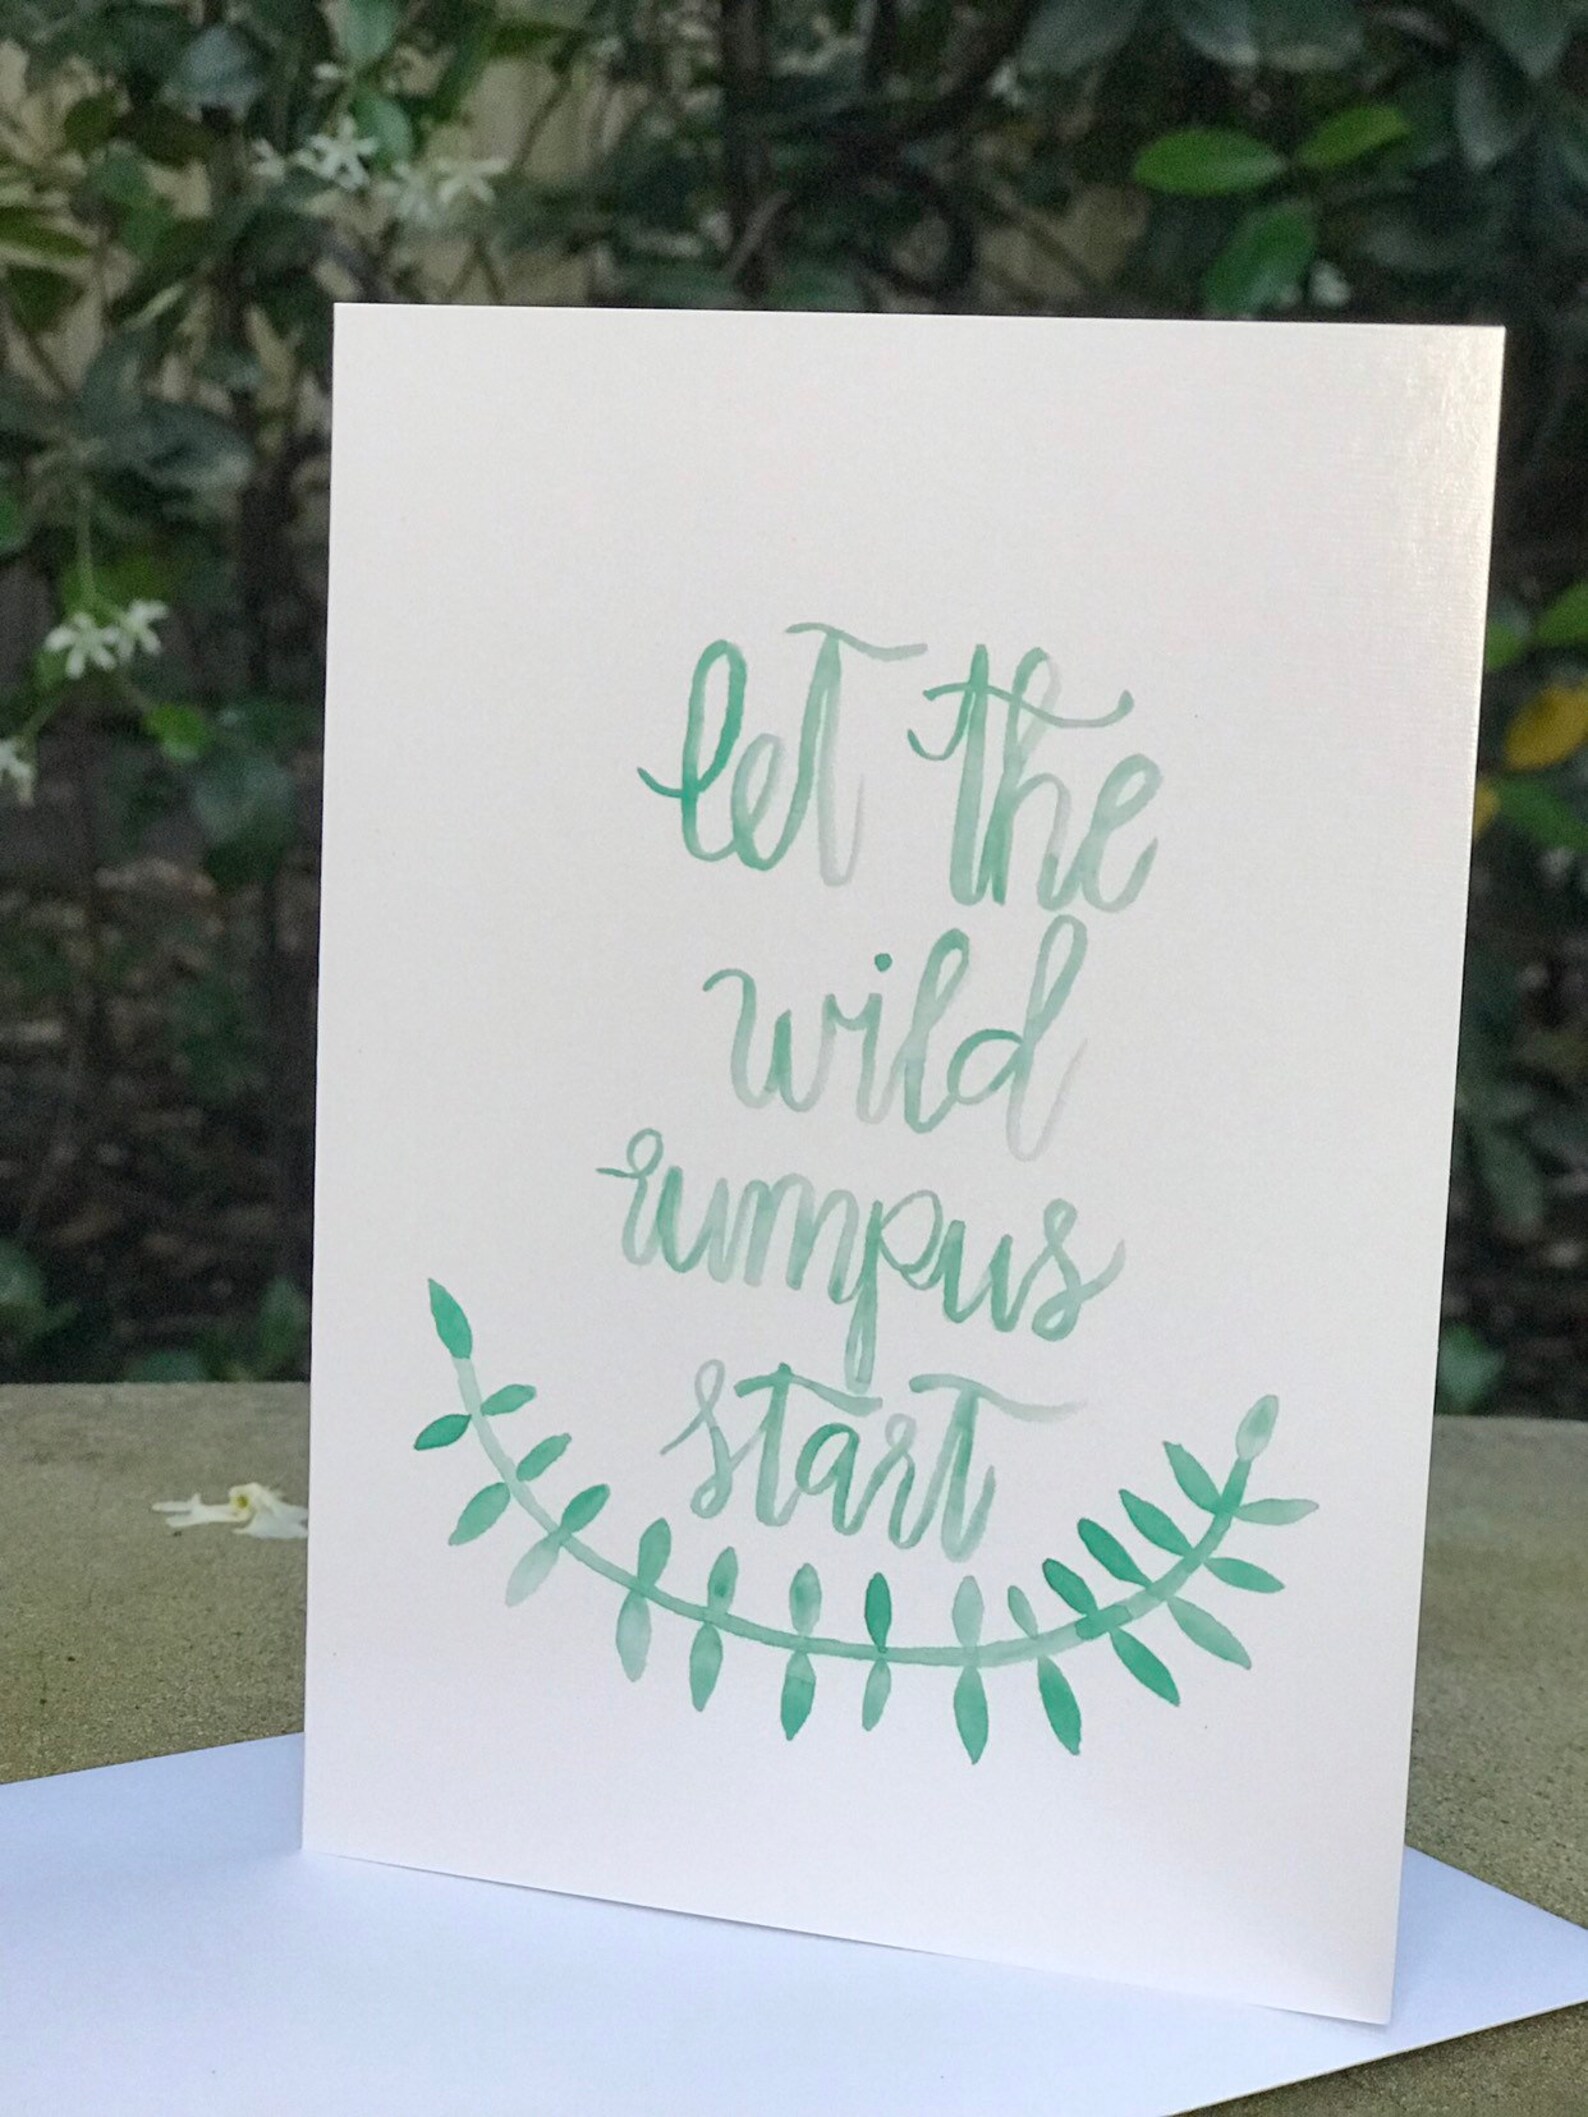 let the
wild
rumpus
start